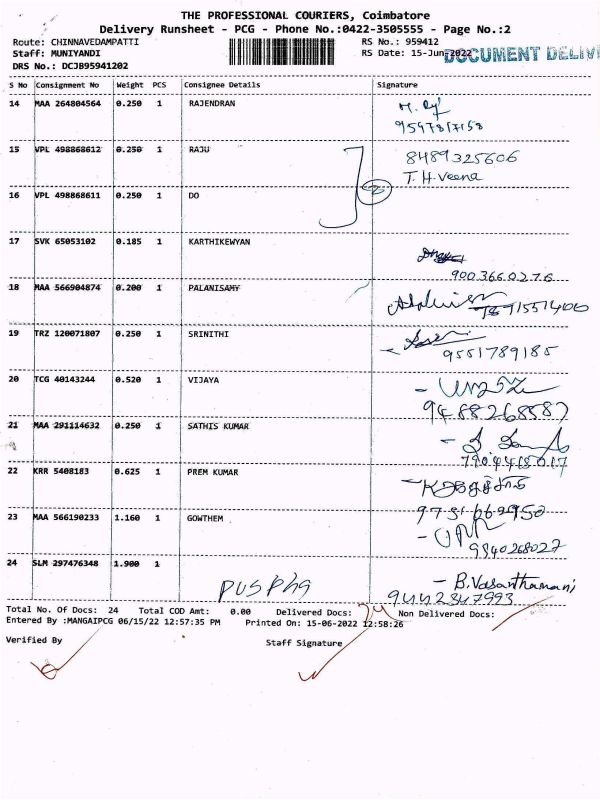 THE PROFESSIONAL COURIERS, Coimbatore
Delivery Runsheet - PCG - Phone No.:0422-3505555 - Page No.:2
Route: CHINNAVEDAMPATTI RS No.: 959412
Staff: MUNIYANDI RS Date: 15-Jun-2022 DOCUMENT DELIV
DRS No.: DCJB95941202
S No Consignment No Weight PCS Consignee Details Signature
14 MAA 264804564 0.250 1 RAJENDRAN
15 VPL 498868612 0.250 1 RAJU 8489325606
T.H.Veena
16 VPL 498868611 0.250 1 DO
17 SVK 65053102 0.185 1 KARTHIKEWYAN
9003660276
18 MAA 566904874 0.200 1 PALANISAMY
19 TRZ 120071807 0.250 1 SRINITHI
9551789185
20 TCG 40143244 0.520 1 VIJAYA
9488268587
21 MAA 291114632 0.250 1 SATHIS KUMAR
22 KRR 5408183 0.625 1 PREM KUMAR
23 MAA 566190233 1.160 1 GOWTHEM
9840268027
24 SLM 297476348 1.900 1 - B.Vasanthamani
PUSPha 9442347993
Total No. Of Docs: 24 Total COD Amt: 0.00 Delivered Docs: 24 Non Delivered Docs:
Entered By :MANGAIPCG 06/15/22 12:57:35 PM Printed On: 15-06-2022 12:58:26
Verified By Staff Signature